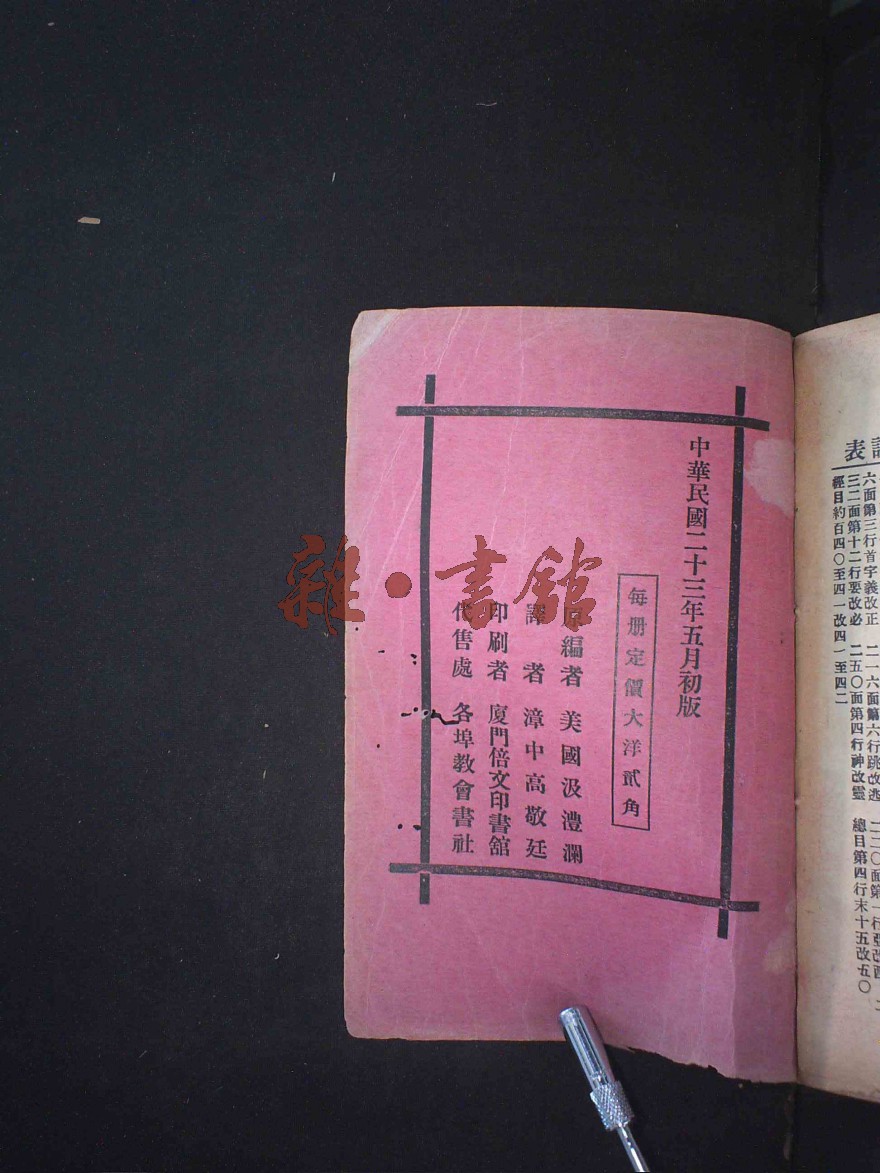 中華民國二十三年五月初版
每册定價大洋貳角
原編者 美國汲澧瀾
譯者 漳中高敬廷
印刷者 廈門倍文印書舘
代售處 各埠教會書社
雜·書舘
表
六面第三行首字義改正 二一六面第六行跳改逃 二三〇面第一行
三二面第十二行要改必 二五〇面第四行神改靈
經目約百四〇至四一改四一至四二 總目第四行末十五改五〇